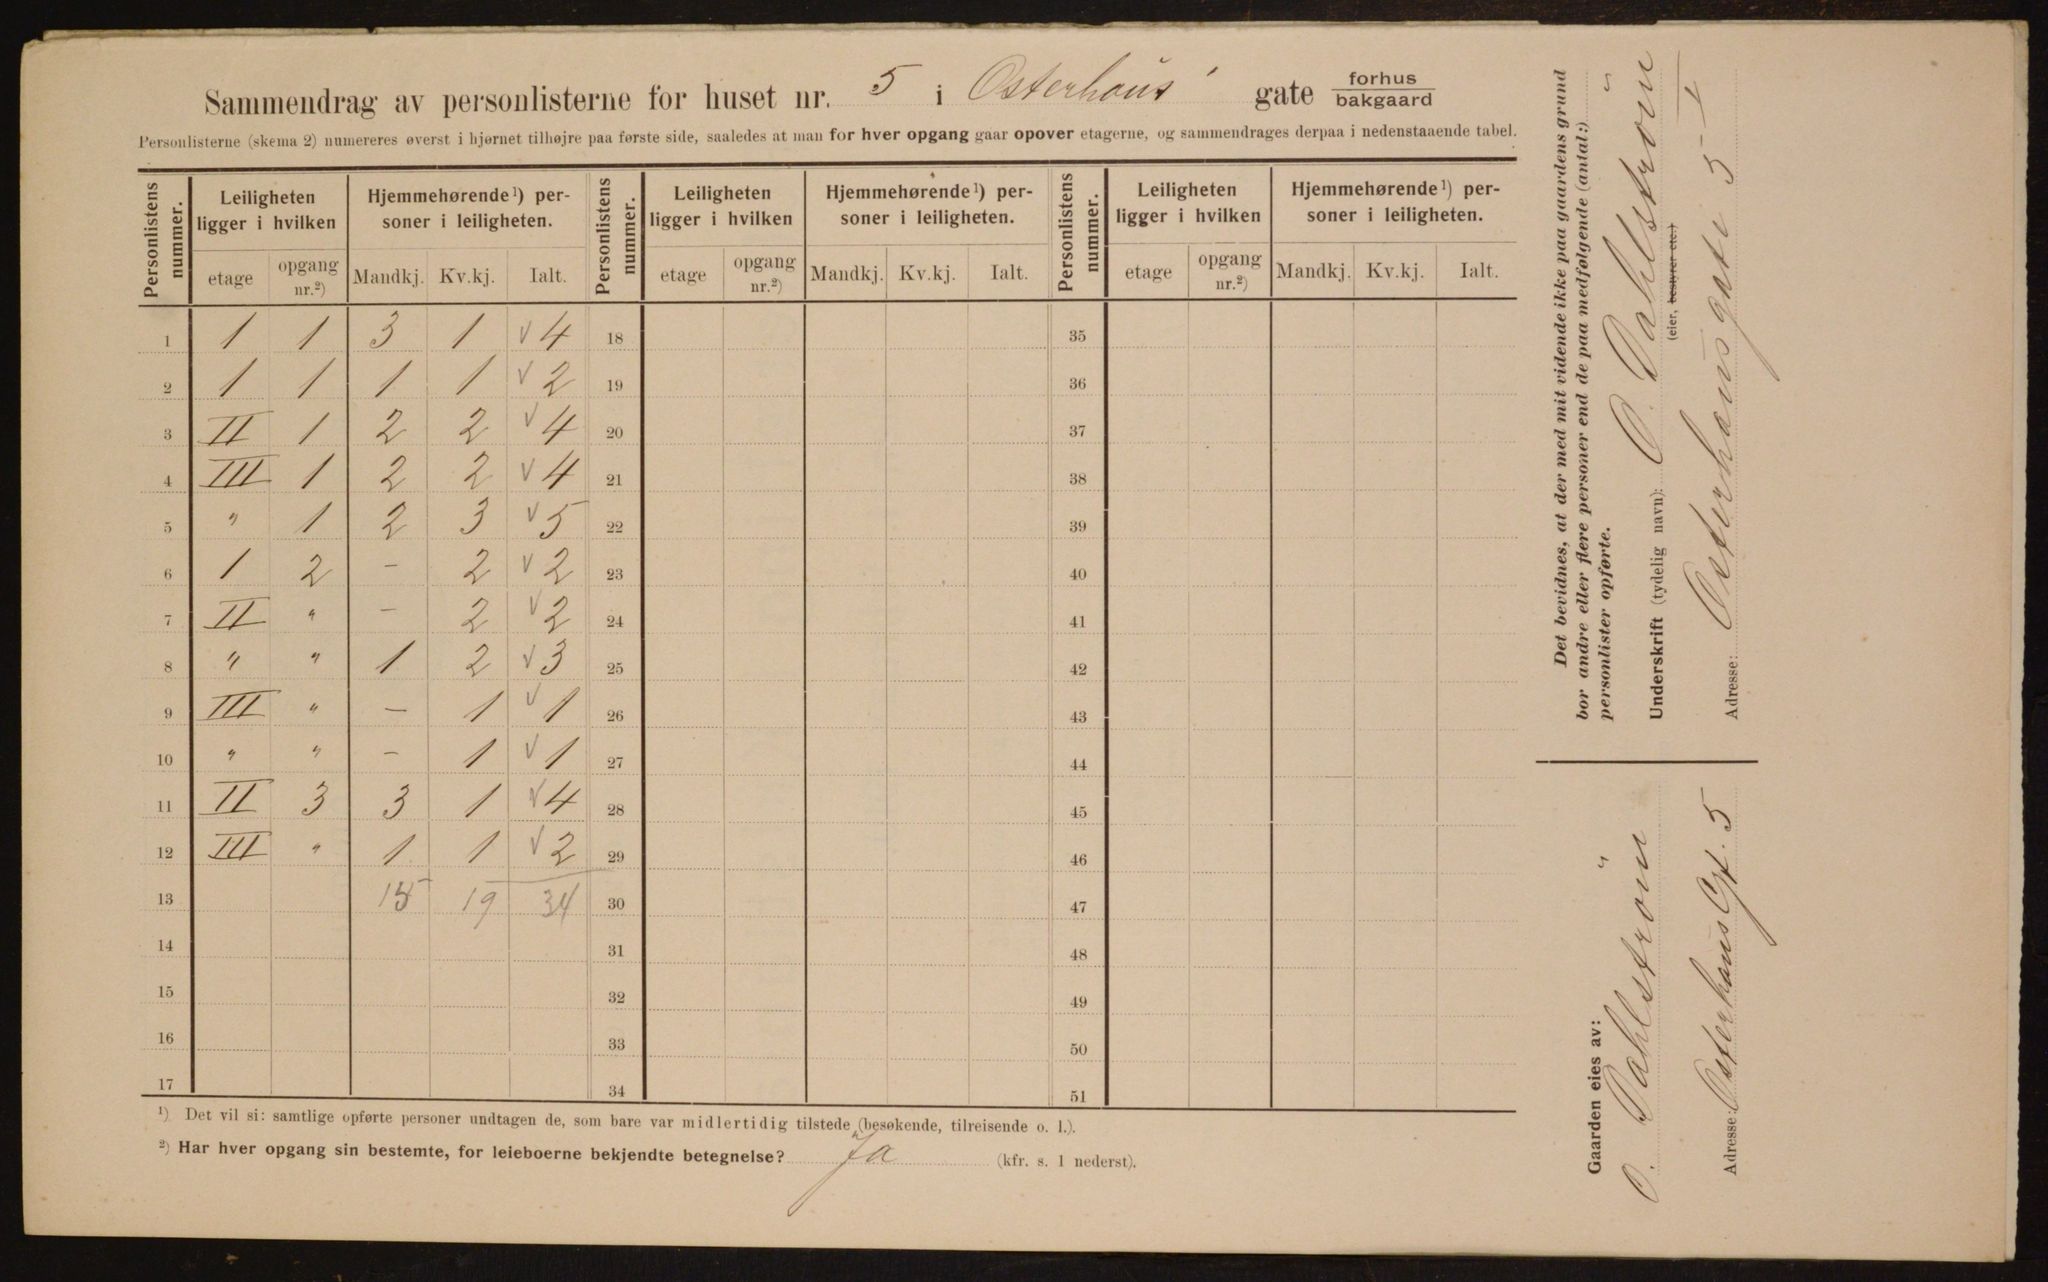 Sammendrag av personlisterne for huset nr. 5 i Osterhaus' gate forhus
bakgaard
Personlisterne (skema 2) numereres øverst i hjørnet tilhøjre paa første side, saaledes at man for hver opgang gaar opover etagerne, og sammendrages derpaa i nedenstaaende tabel.
Personlistens nummer. Leiligheten ligger i hvilken Hjemmehørende¹) personer i leiligheten. Personlistens nummer. Leiligheten ligger i hvilken Hjemmehørende¹) personer i leiligheten. Personlistens nummer. Leiligheten ligger i hvilken Hjemmehørende¹) personer i leiligheten.
etage opgang nr.²) Mandkj. Kv.kj. Ialt. etage opgang nr.²) Mandkj. Kv.kj. Ialt. etage opgang nr.²) Mandkj. Kv.kj. Ialt.
1 1 1 3 1 √ 4 18 35
2 1 1 1 1 √ 2 19 36
3 II 1 2 2 √ 4 20 37
4 III 1 2 2 √ 4 21 38
5 " 1 2 3 √ 5 22 39
6 1 2 - 2 √ 2 23 40
7 II " - 2 √ 2 24 41
8 " " 1 2 √ 3 25 42
9 III " - 1 √ 1 26 43
10 " " - 1 √ 1 27 44
11 II 3 3 1 √ 4 28 45
12 III " 1 1 √ 2 29 46
13 15 19 34 30 47
14 31 48
15 32 49
16 33 50
17 34 51
¹) Det vil si: samtlige opførte personer undtagen de, som bare var midlertidig tilstede (besøkende, tilreisende o. l.).
²) Har hver opgang sin bestemte, for leieboerne bekjendte betegnelse? Ja (kfr. s. 1 nederst).
Det bevidnes, at der med mit vidende ikke paa gaardens grund
bor andre eller flere personer end de paa medfølgende (antal:) "
personlister opførte.
Underskrift (tydelig navn): O. Dahlström
(eier, bestyrer etc.)
Adresse: Osterhausgate 5 I
Gaarden eies av: "
O. Dahlström
Adresse: Osterhaus Gt. 5